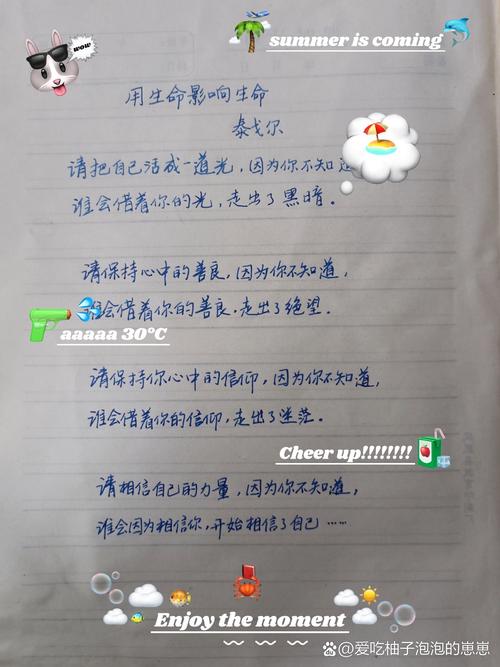 wow
summer is coming
用生命影响生命
泰戈尔
请把自己活成一道光，因为你不知道
谁会借着你的光，走出了黑暗。
请保持心中的善良，因为你不知道，
谁会借着你的善良，走出了绝望。
aaaaa 30°C
请保持你心中的信仰，因为你不知道，
谁会借着你的信仰，走出了迷茫。
Cheer up!!!!!!!!
请相信自己的力量，因为你不知道，
谁会因为相信你，开始相信了自己……
Enjoy the moment
爱吃柚子泡泡的崽崽